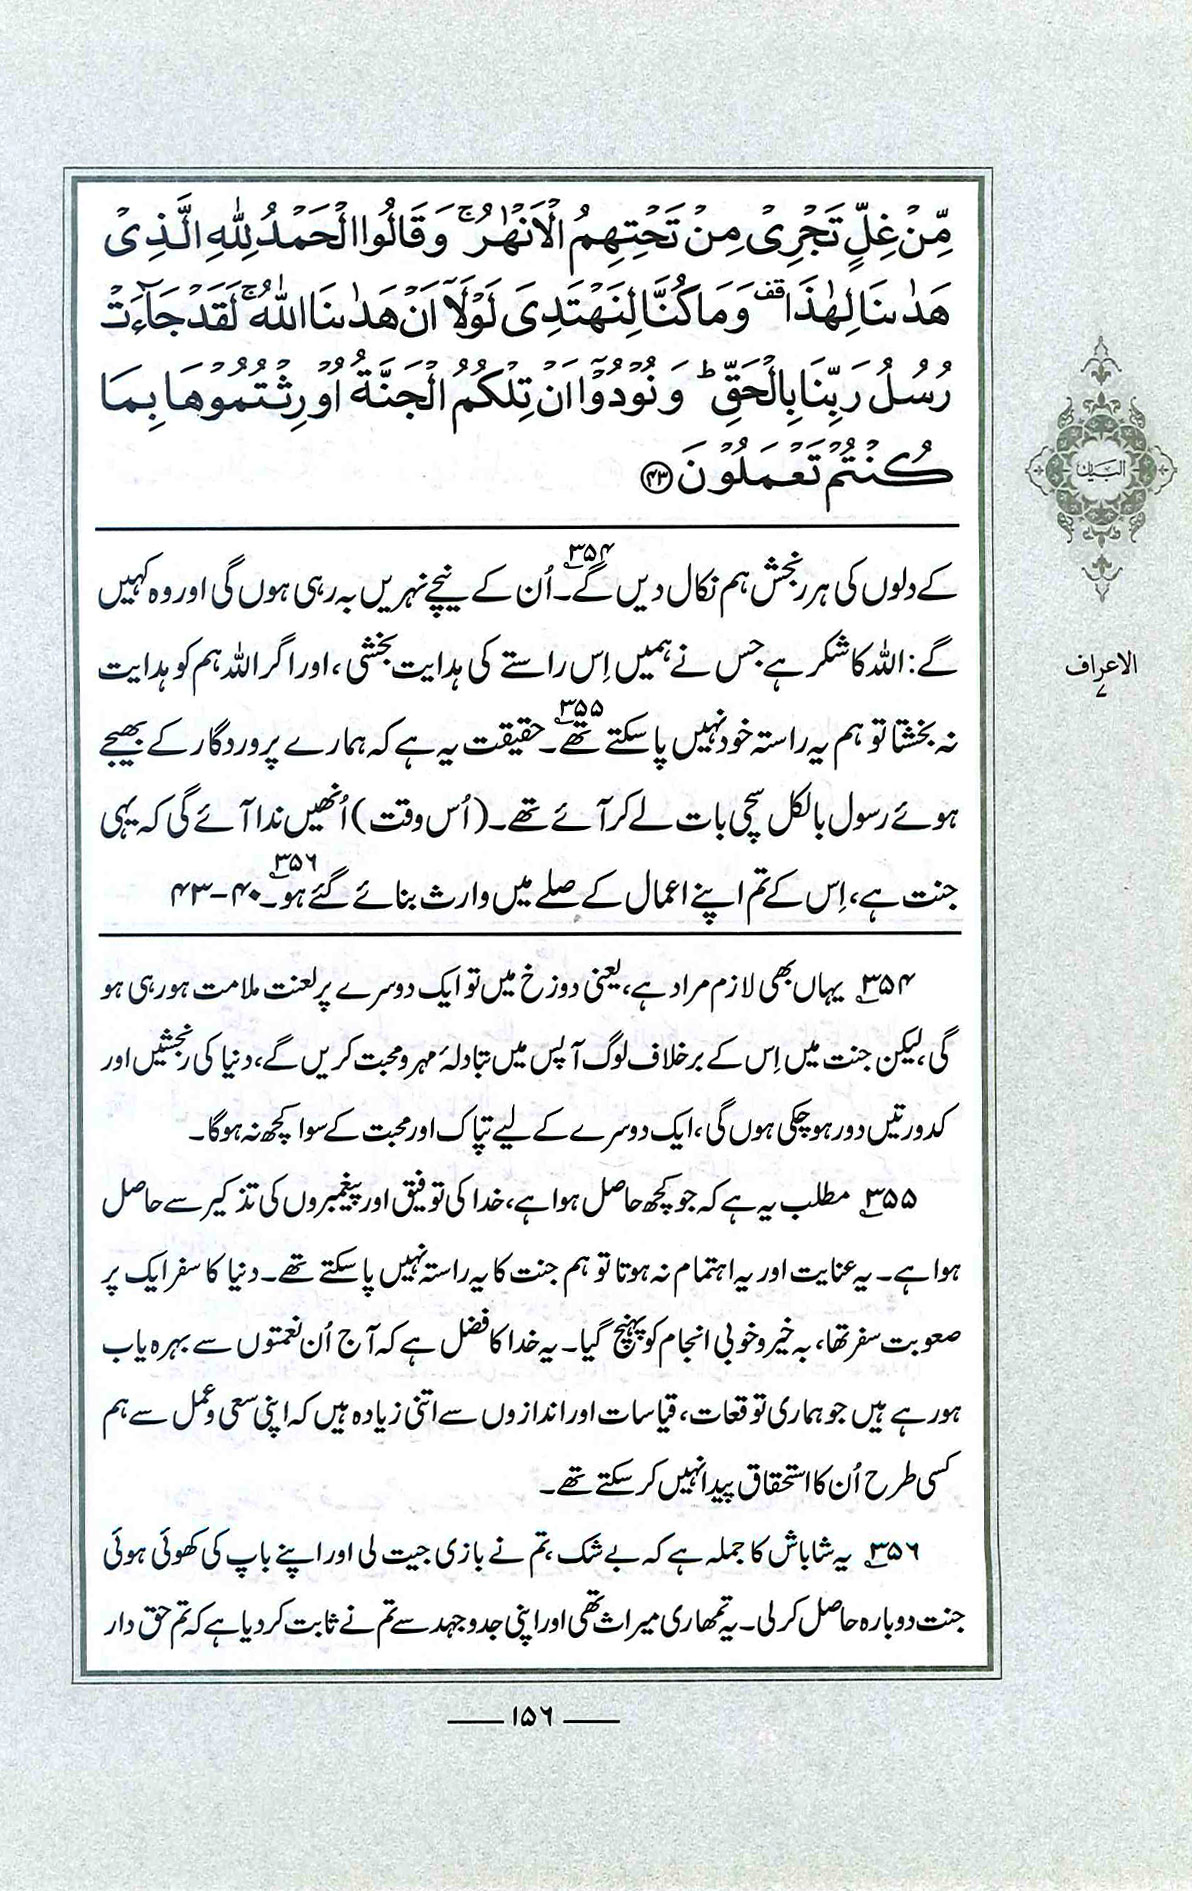 مِّنْ غِلٍّ تَجْرِىْ مِنْ تَحْتِهِمُ الْاَنْهٰرُ ۚ وَ قَالُوا الْحَمْدُ لِلّٰهِ الَّذِىْ
هَدٰىنَا لِهٰذَا ۫ وَ مَا كُنَّا لِنَهْتَدِىَ لَوْلَاۤ اَنْ هَدٰىنَا اللّٰهُ ۚ لَقَدْ جَآءَتْ
رُسُلُ رَبِّنَا بِالْحَقِّ ؕ وَ نُوْدُوْۤا اَنْ تِلْكُمُ الْجَنَّةُ اُوْرِثْتُمُوْهَا بِمَا
كُنْتُمْ تَعْمَلُوْنَ ﴿۴۳﴾
کے دلوں کی ہر رنجش ہم نکال دیں گے۔۳۵۴ اُن کے نیچے نہریں بہ رہی ہوں گی اور وہ کہیں
گے: اللہ کا شکر ہے جس نے ہمیں اِس راستے کی ہدایت بخشی، اور اگر اللہ ہم کو ہدایت
نہ بخشتا تو ہم یہ راستہ خود نہیں پا سکتے تھے۔۳۵۵ حقیقت یہ ہے کہ ہمارے پروردگار کے بھیجے
ہوئے رسول بالکل سچی بات لے کر آئے تھے۔ (اُس وقت) اُنھیں ندا آئے گی کہ یہی
جنت ہے، اِس کے تم اپنے اعمال کے صلے میں وارث بنائے گئے ہو۔۳۵۶ ۴۰-۴۳
۳۵۴ یہاں بھی لازم مراد ہے، یعنی دوزخ میں تو ایک دوسرے پر لعنت ملامت ہو رہی ہو
گی، لیکن جنت میں اِس کے برخلاف لوگ آپس میں تبادلۂ مہر و محبت کریں گے، دنیا کی رنجشیں اور
کدورتیں دور ہو چکی ہوں گی، ایک دوسرے کے لیے تپاک اور محبت کے سوا کچھ نہ ہوگا۔
۳۵۵ مطلب یہ ہے کہ جو کچھ حاصل ہوا ہے، خدا کی توفیق اور پیغمبروں کی تذکیر سے حاصل
ہوا ہے۔ یہ عنایت اور یہ اہتمام نہ ہوتا تو ہم جنت کا یہ راستہ نہیں پا سکتے تھے۔ دنیا کا سفر ایک پر
صعوبت سفر تھا، بہ خیر و خوبی انجام کو پہنچ گیا۔ یہ خدا کا فضل ہے کہ آج اُن نعمتوں سے بہرہ یاب
ہو رہے ہیں جو ہماری توقعات، قیاسات اور اندازوں سے اتنی زیادہ ہیں کہ اپنی سعی و عمل سے ہم
کسی طرح اُن کا استحقاق پیدا نہیں کر سکتے تھے۔
۳۵۶ یہ شاباش کا جملہ ہے کہ بے شک، تم نے بازی جیت لی اور اپنے باپ کی کھوئی ہوئی
جنت دوبارہ حاصل کر لی۔ یہ تمھاری میراث تھی اور اپنی جدوجہد سے تم نے ثابت کر دیا ہے کہ تم حق دار
البیان
الاعراف
۷
۱۵۶